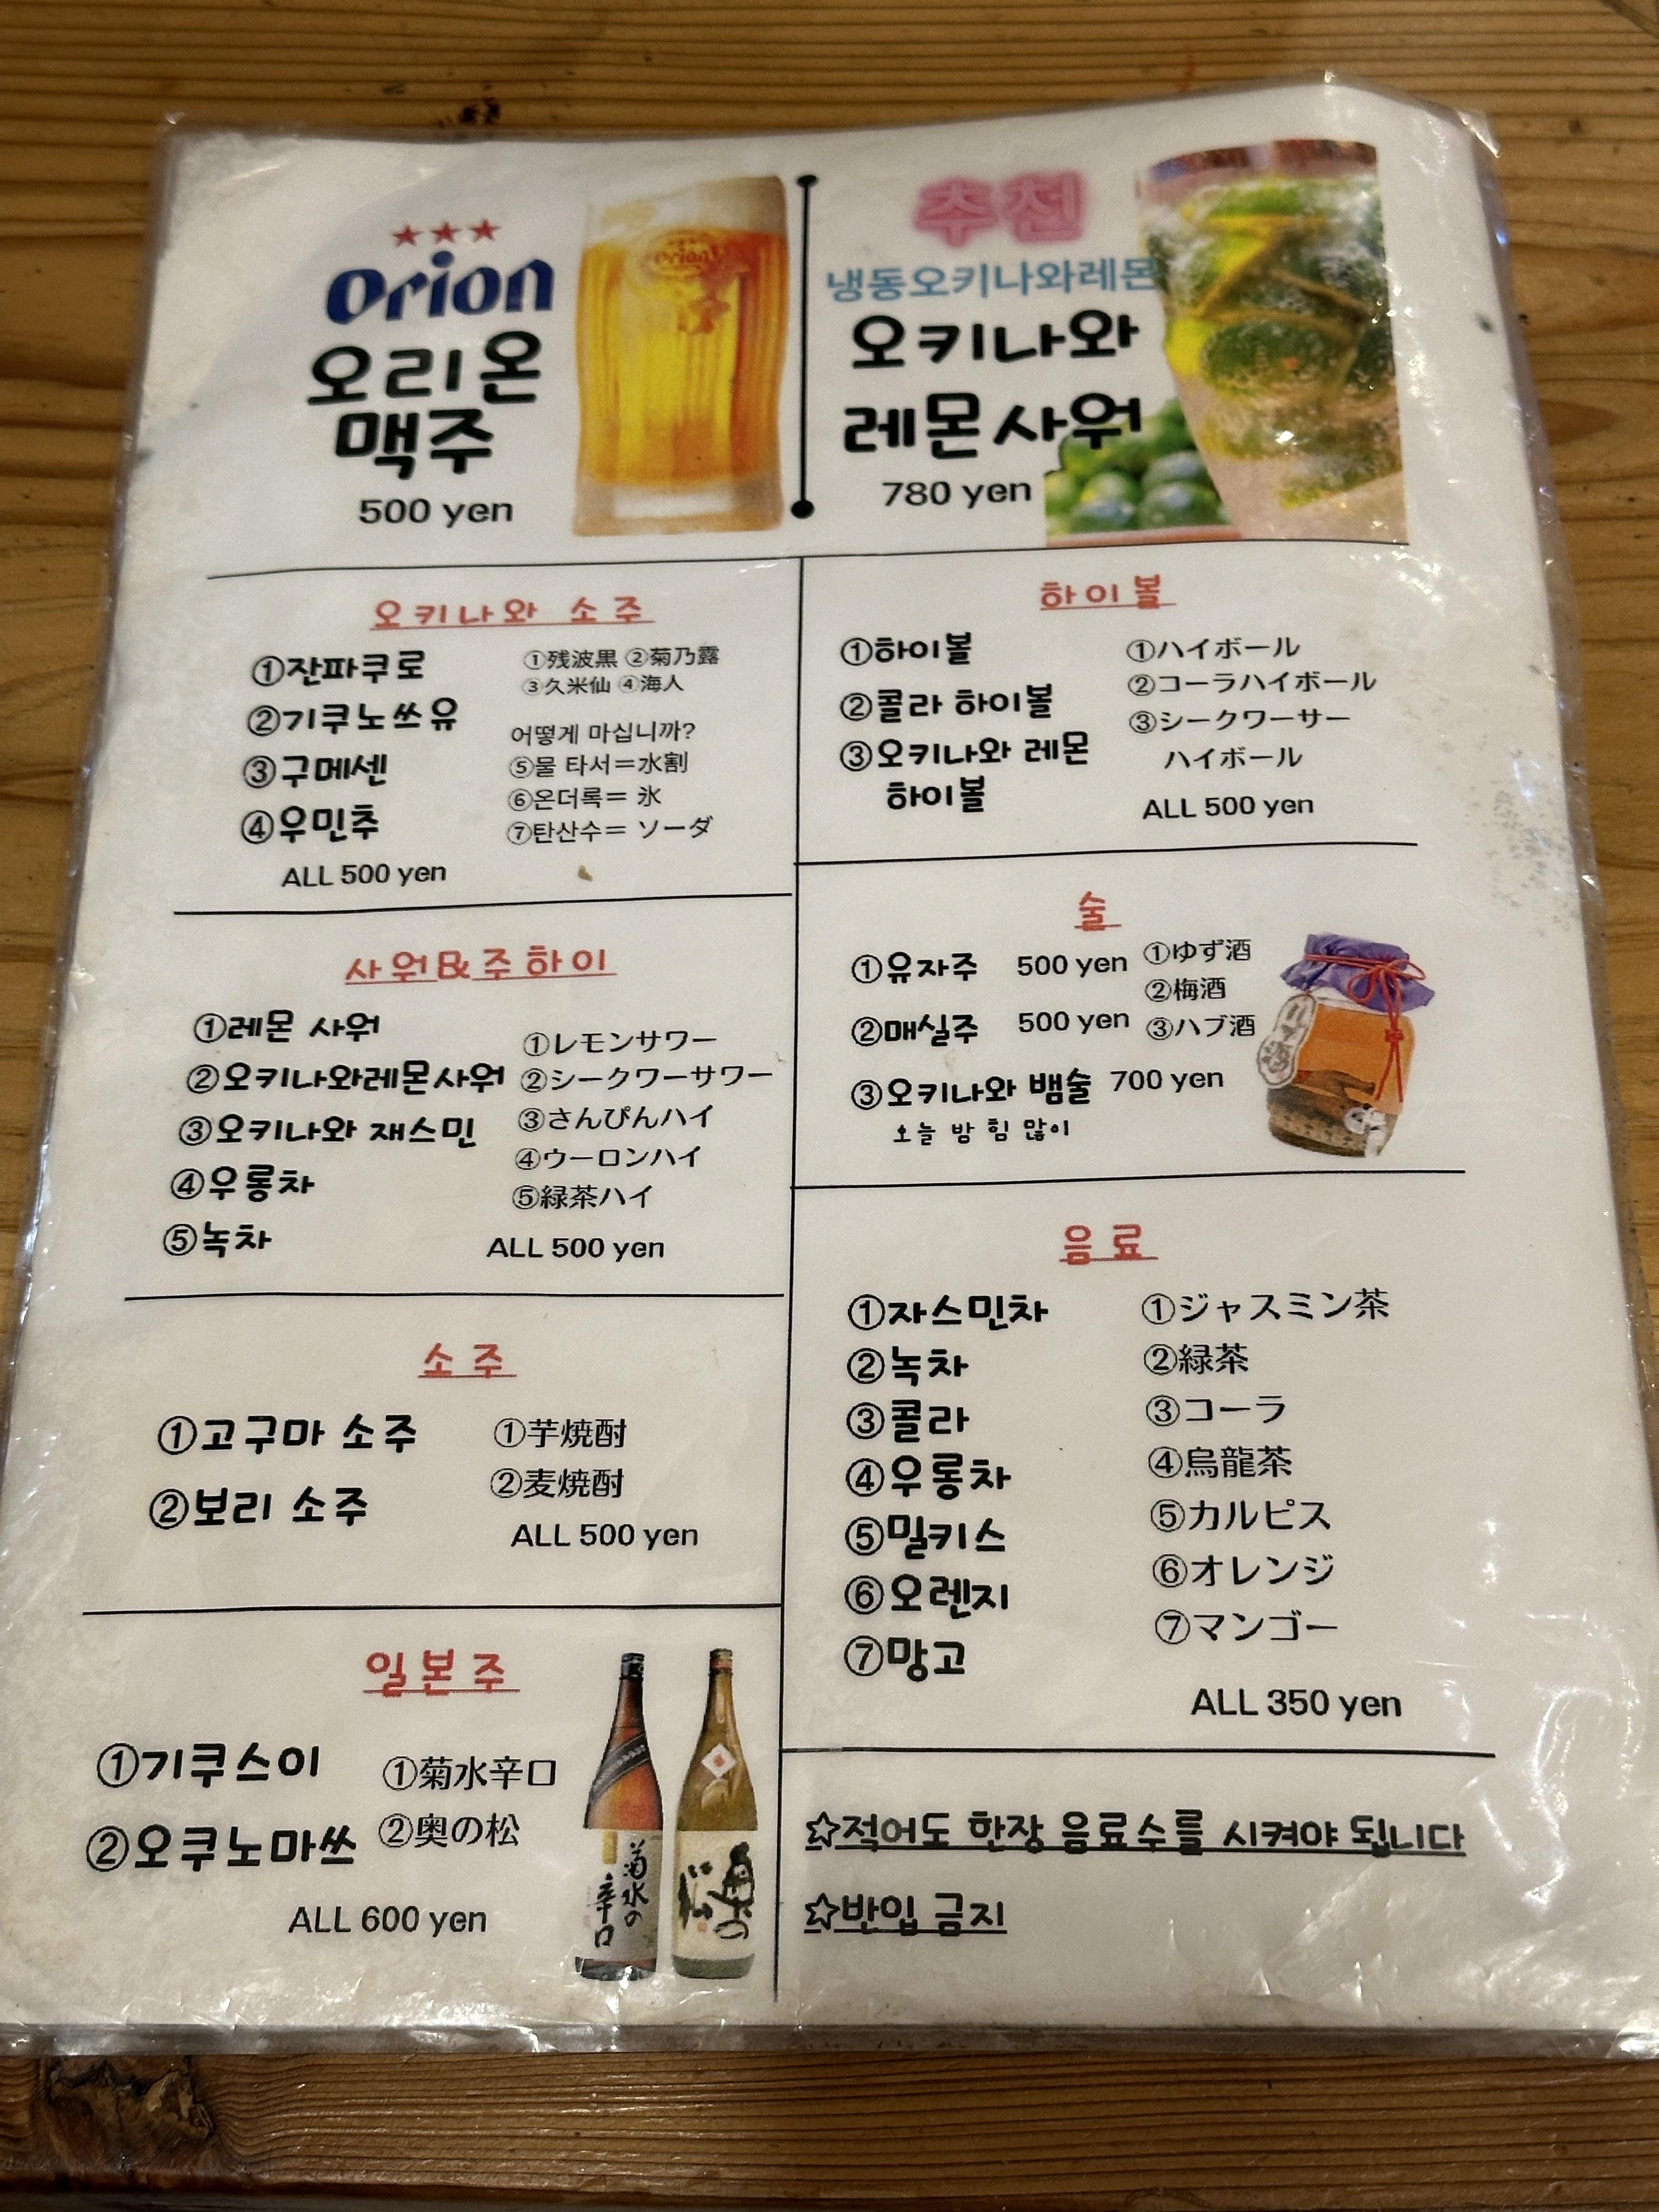 Orion
오리온
맥주
500 yen
추천
냉동오키나와레몬
오키나와
레몬사워
780 yen
오키나와 소주
①잔파쿠로
②기쿠노쓰유
③구메센
④우민추
ALL 500 yen
①残波黒 ②菊乃露
③久米仙 ④海人
어떻게 마십니까?
⑤물 타서=水割
⑥온더록= 氷
⑦탄산수= ソーダ
하이볼
①하이볼
②콜라 하이볼
③오키나와 레몬
하이볼
①ハイボール
②コーラハイボール
③シークワーサー
ハイボール
ALL 500 yen
사워&주하이
①레몬 사워
②오키나와레몬사워
③오키나와 재스민
④우롱차
⑤녹차
①レモンサワー
②シークワーサワー
③さんぴんハイ
④ウーロンハイ
⑤緑茶ハイ
ALL 500 yen
술
①유자주 500 yen
②매실주 500 yen
③오키나와 뱀술 700 yen
오늘 밤 힘 많이
①ゆず酒
②梅酒
③ハブ酒
소주
①고구마 소주
②보리 소주
①芋焼酎
②麦焼酎
ALL 500 yen
음료
①자스민차
②녹차
③콜라
④우롱차
⑤밀키스
⑥오렌지
⑦망고
①ジャスミン茶
②緑茶
③コーラ
④烏龍茶
⑤カルピス
⑥オレンジ
⑦マンゴー
ALL 350 yen
일본주
①기쿠스이
②오쿠노마쓰
①菊水辛口
②奥の松
ALL 600 yen
菊水の
辛口
☆적어도 한장 음료수를 시켜야 됩니다
☆반입 금지